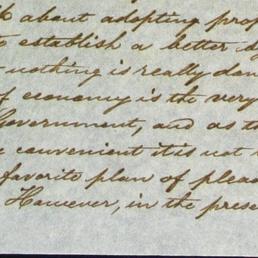 k about adopting prop
to establish a better sy
nothing is really don
of economy is the very
Government, and as th
convenient it is not
favorite plan of plea
However, in the prese